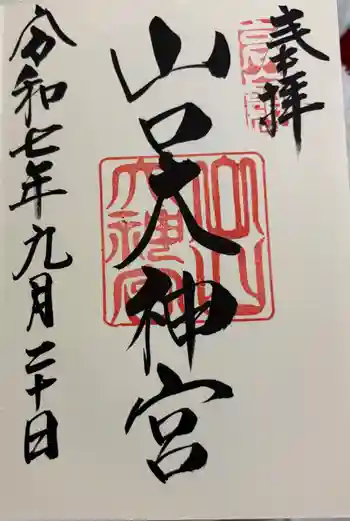 奉拝
山口大神宮
令和七年九月二十日